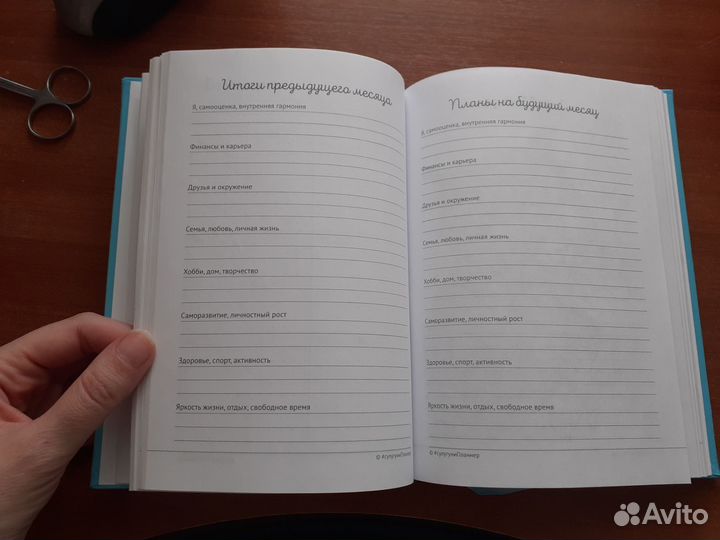 Итоги предыдущего месяца
Я, самооценка, внутренняя гармония
Финансы и карьера
Друзья и окружение
Семья, любовь, личная жизнь
Хобби, дом, творчество
Саморазвитие, личностный рост
Здоровье, спорт, активность
Яркость жизни, отдых, свободное время
© #сулугуниПланнер
Планы на будущий месяц
Я, самооценка, внутренняя гармония
Финансы и карьера
Друзья и окружение
Семья, любовь, личная жизнь
Хобби, дом, творчество
Саморазвитие, личностный рост
Здоровье, спорт, активность
Яркость жизни, отдых, свободное время
© #сулугуниПланнер
Avito